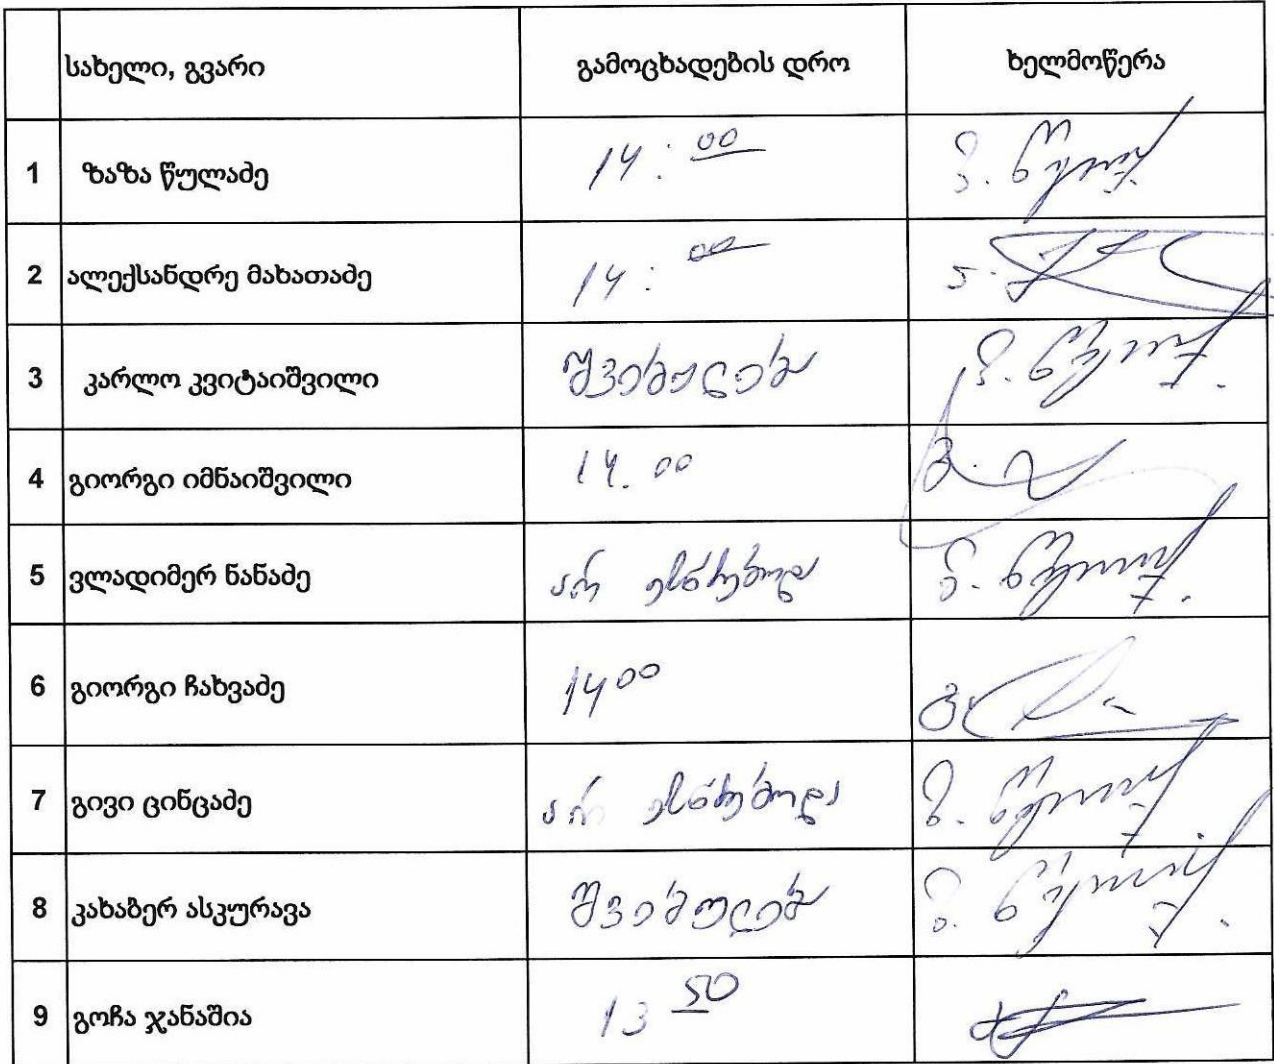 სახელი, გვარი გამოცხადების დრო ხელმოწერა
1 ზაზა წულაძე 14:00 ზ. წულაძე
2 ალექსანდრე მახათაძე 14:00
3 კარლო კვიტაიშვილი შვებულება
4 გიორგი იმნაიშვილი 14.00
5 ვლადიმერ ნანაძე არ ესწრებოდა
6 გიორგი ჩახვაძე 14 00
7 გივი ცინცაძე არ ესწრებოდა
8 კახაბერ ასკურავა შვებულება
9 გოჩა ჯანაშია 13 50